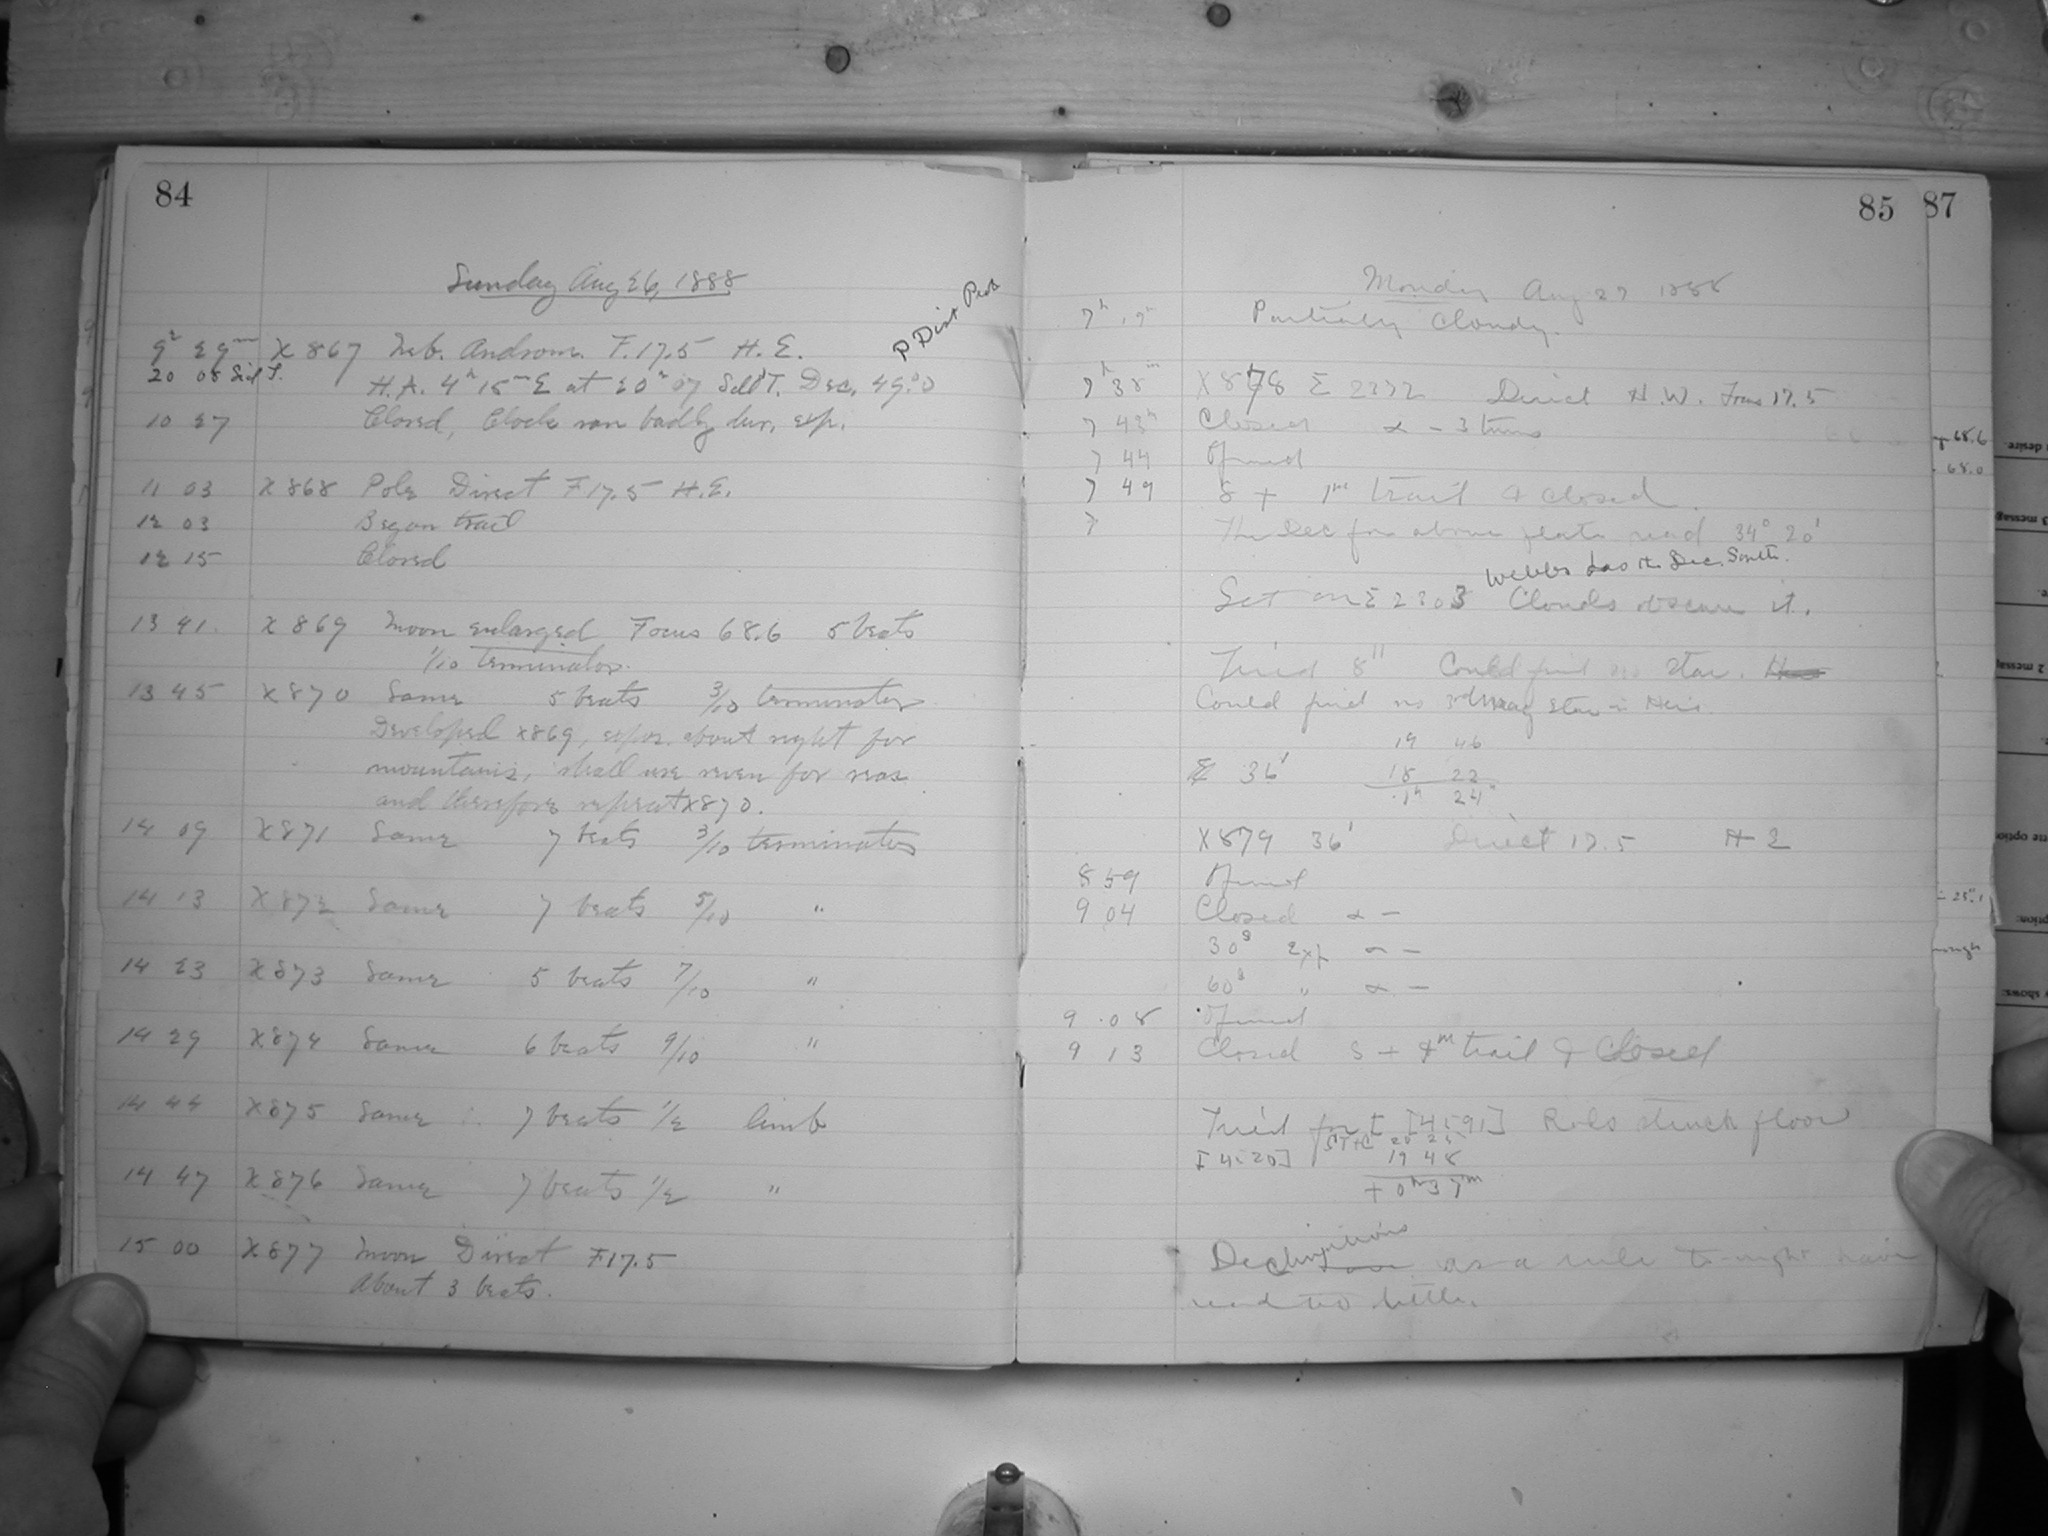 84
Sunday Aug 26, 1888
P Dist Prob
9h 29m X867 Neb. Androm. F. 17.5 H. E.
20 08 Sid T. H.A. 4h 15m E at 20h 07 Sid T. Dec. 49.°0
10 27 Closed, Clock ran badly dur. exp.
11 03 X868 Pole Direct F 17.5 H.E.
12 03 Began trail
12 15 Closed
13 41 X869 Moon enlarged Focus 68.6 5 beats
1/10 terminator.
13 45 X870 Same 5 beats 3/10 terminator
Developed X869, expos. about right for
mountains, shall use seven for seas
and therefore repeat X870.
14 09 X871 Same 7 beats 3/10 terminator
14 13 X872 Same 7 beats 5/10 "
14 23 X873 Same 5 beats 7/10 "
14 29 X874 Same 6 beats 9/10 "
14 44 X875 Same 7 beats 1/2 limb
14 47 X876 Same 7 beats 1/2 "
15 00 X877 Moon Direct F 17.5
About 3 beats.
85
Monday Aug 27 1888
Partially Cloudy.
7h 38m X878 Σ 2372 Direct H.W. Focus 17.5
7 43 Closed α - 3 turns
7 44 Opened
7 49 δ + 1m trail & closed.
7 The Dec for above plate read 34° 20'
Webbs has the Dec. South.
Set on Σ 2303 Clouds obscure it.
Tried 8" Could find no star.
Could find no 3d mag star in
19 46
36' 18 22
1h 24m
X879 36' Direct 17.5 H E
8 59 Opened
9 04 Closed α -
30s Exp α -
60s " α -
9 08 Opened
9 13 Closed δ + 4m trail & Closed
Tried for [4591] Rols struck floor
[4520] ST+C 20 25
19 48
+ 0h 37m
Declinations as a rule tonight have
read too little.
87
68.6
68.0